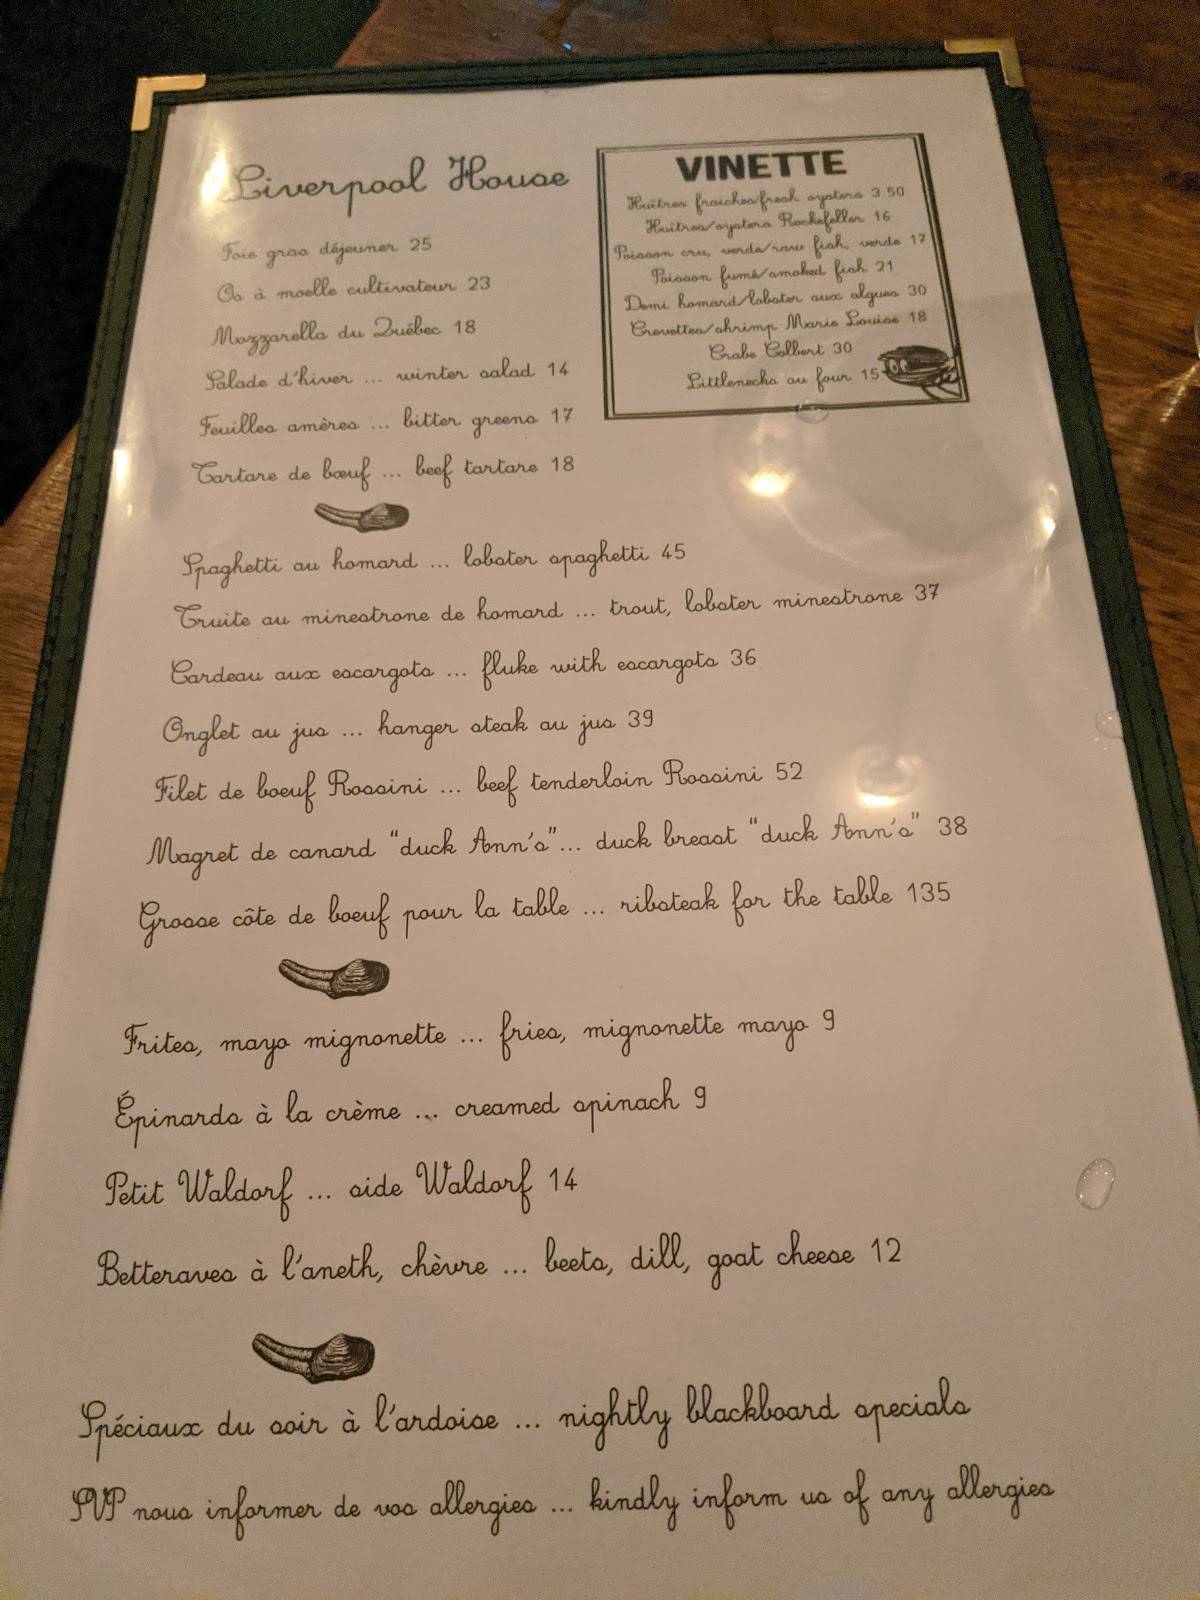 Liverpool House
Foie gras déjeuner 25
Os à moelle cultivateur 23
Mozzarella du Québec 18
Salade d'hiver ... winter salad 14
Feuilles amères ... bitter greens 17
Tartare de bœuf ... beef tartare 18
VINETTE
Huîtres fraiches/fresh oysters 3.50
Huîtres/oysters Rockefeller 16
Poisson cru, verde/raw fish, verde 17
Poisson fumé/smoked fish 21
Demi homard/lobster aux algues 30
Crevettes/shrimp Marie Louise 18
Crabe Colbert 30
Littlenecks au four 15
Spaghetti au homard ... lobster spaghetti 45
Truite au minestrone de homard ... trout, lobster minestrone 37
Cardeau aux escargots ... fluke with escargots 36
Onglet au jus ... hanger steak au jus 39
Filet de boeuf Rossini ... beef tenderloin Rossini 52
Magret de canard "duck Ann's"... duck breast "duck Ann's" 38
Grosse côte de boeuf pour la table ... ribsteak for the table 135
Frites, mayo mignonette ... fries, mignonette mayo 9
Épinards à la crème ... creamed spinach 9
Petit Waldorf ... side Waldorf 14
Betteraves à l'aneth, chèvre ... beets, dill, goat cheese 12
Spéciaux du soir à l'ardoise ... nightly blackboard specials
SVP nous informer de vos allergies ... kindly inform us of any allergies